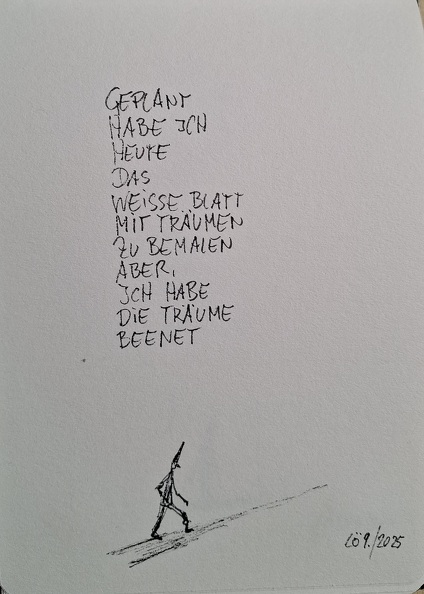 GEPLANT
HABE ICH
HEUTE
DAS
WEISSE BLATT
MIT TRÄUMEN
ZU BEMALEN
ABER,
ICH HABE
DIE TRÄUME
BEENET
LÖ 9./2025